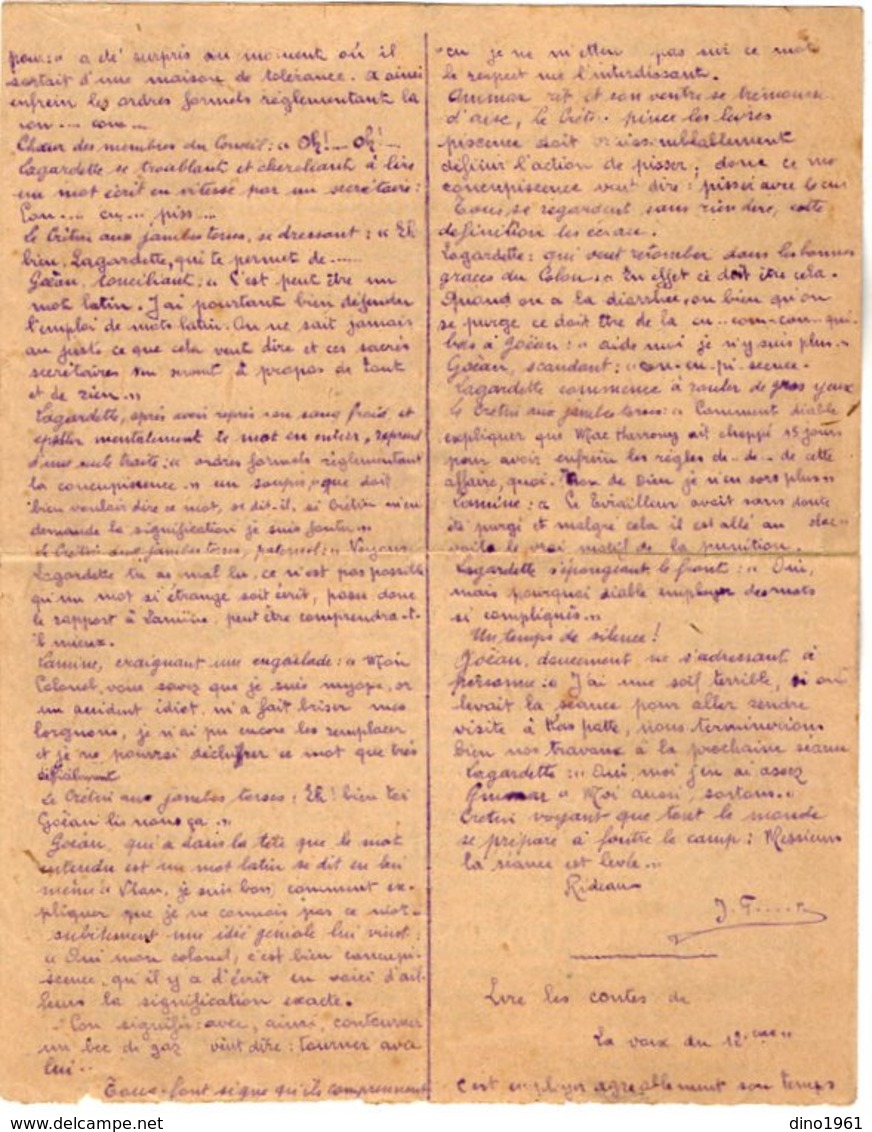 pour : « a été surpris au moment où il
sortait d'une maison de tolérance. a ainsi
enfrein les ordres formels réglementant la
con.... conc...
Chœur des membres du Conseil : « Oh!... Oh!
Lagardette se troublant et cherchant à lire
un mot écrit en vitesse par un secrétaire :
Con.... cu.... piss....
le Crétin aux jambes torses, se dressant : « Eh
bien, Lagardette, qui te permet de ......
Goëan, conciliant : « C'est peut être un
mot latin. J'ai pourtant bien défendu
l'emploi de mots latin. On ne sait jamais
au juste ce que cela veut dire et ces sacrés
secrétaires en à propos de tout
et de rien »
Lagardette, après avoir repris son sang froid, et
épeller mentalement le mot en entier, reprend
d'une seule traite : « ordres formels réglementant
la concupiscence » un soupir, « que doit
bien vouloir dire ce mot, se dit-il, si Crétin m'en
demande la signification je suis foutu »
et Crétin aux jambes torses, paternel : « Voyons
Lagardette tu as mal lu, ce n'est pas possible
qu'un mot si étrange soit écrit, passe donc
le rapport à Lamine, peut être comprendra-t-
il mieux.
Lamine, craignant une engueulade : « Mon
Colonel, vous savez que je suis myope, or
un accident idiot, m'a fait briser mes
lorgnons, je n'ai pu encore les remplacer
et je ne pourrai déchiffrer ce mot que très
difficilement
Le Crétin aux jambes torses : Eh! bien toi
Goëan lis nous ça. »
Goëan, qui a dans la tête que le mot
entendu est un mot latin se dit en lui
même « Vlan, je suis bon, comment ex-
pliquer que je ne connais pas ce mot.
subitement une idée géniale lui vient :
« Oui mon colonel, c'est bien concupi-
scence, qu'il y a d'écrit en voici d'ail-
leurs la signification exacte.
Con signifie : avec, ainsi, contourner
un bec de gaz veut dire : tourner avec
lui..
Tous font signe qu'ils comprennent
"cu je ne m'étten pas sur ce mot
le respect me l'interdissant.
Ammar rit et son ventre se trémousse
d'aise, le Crétin pince les lèvres
piscence doit vraissemblablement
définir l'action de pisser, donc ce mo
concupiscence veut dire : pisser avec le cu
Tous se regardent sans rien dire, cette
définition les écrase.
Lagardette : qui veut retomber dans les bonnes
graces du Colon. « En effet ce doit être cela.
Quand on a la diarrhée, ou bien qu'on
se purge ce doit être de la cu.. com-con.. qui-
bas à Goëan : « aide moi je n'y suis plus. »
Goëan, scandant : « con-cu-pi-scence.
Lagardette commence à rouler de gros yeux
le Crétin aux jambes torses : « Comment diable
expliquer que Mac Harrony ait choppé 15 jours
pour avoir enfrein les règles de.. de.. de cette
affaire, quoi. de Dieu je n'en sors plus »
Lamine : « Le Tirailleur avait sans doute
été purgé et malgré cela il est allé au
voilà le vrai motif de la punition.
Lagardette s'épongeant le front : « Oui,
mais pourquoi diable employer des mots
si compliqués. »
Un temps de silence!
Goëan, doucement ne s'adressant à
personne : « J'ai une soif terrible, si on
levait la séance pour aller rendre
visite à Kas patte, nous terminerions
bien nos travaux à la prochaine séance
Lagardette : « Oui, moi j'en ai assez
Ammar « Moi aussi, sortons. »
Crétin voyant que tout le monde
se prépare à foutre le camp : Messieurs
la séance est levée...
Rideau
J. T......r
Lire les contes de
La voix du 12 ème "
c'est employer agréablement son temps
dino1961